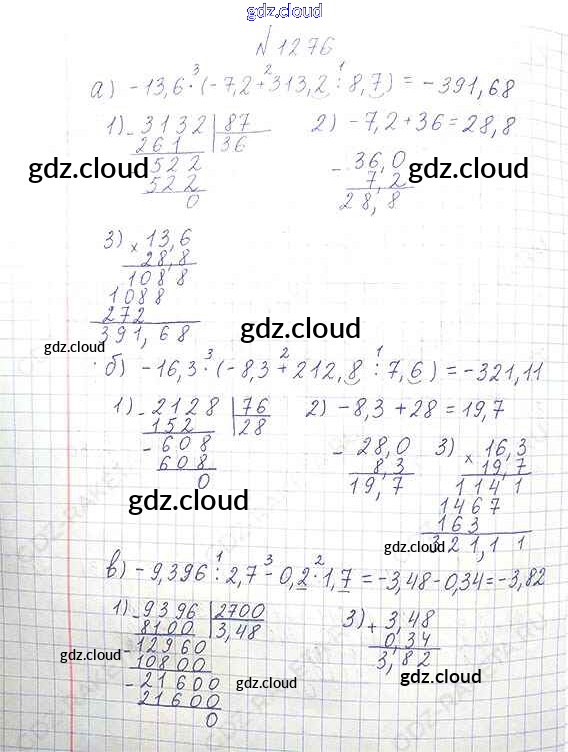 gdz.cloud
N 1276
а) -13,6 ·³ (-7,2 +² 313,2 :¹ 8,7) = -391,68
1) - 3132 | 87
261 36
- 522
522
0
2) -7,2 + 36 = 28,8
- 36,0
7,2
28,8
3) × 13,6
28,8
1088
1088
272
391,68
gdz.cloud
gdz.cloud
gdz.cloud
gdz.cloud
б) -16,3 ·³ (-8,3 +² 212,8 :¹ 7,6) = -321,11
1) - 2128 | 76
152 28
- 608
608
0
2) -8,3 + 28 = 19,7
- 28,0
8,3
19,7
3) × 16,3
19,7
1141
1467
163
321,11
gdz.cloud
gdz.cloud
в) -9,396 :¹ 2,7 -³ 0,2 ·² 1,7 = -3,48 - 0,34 = -3,82
1) - 9396 | 2700
8100 3,48
- 12960
10800
- 21600
21600
0
3) + 3,48
0,34
3,82
gdz.cloud
gdz.cloud
gdz.cloud